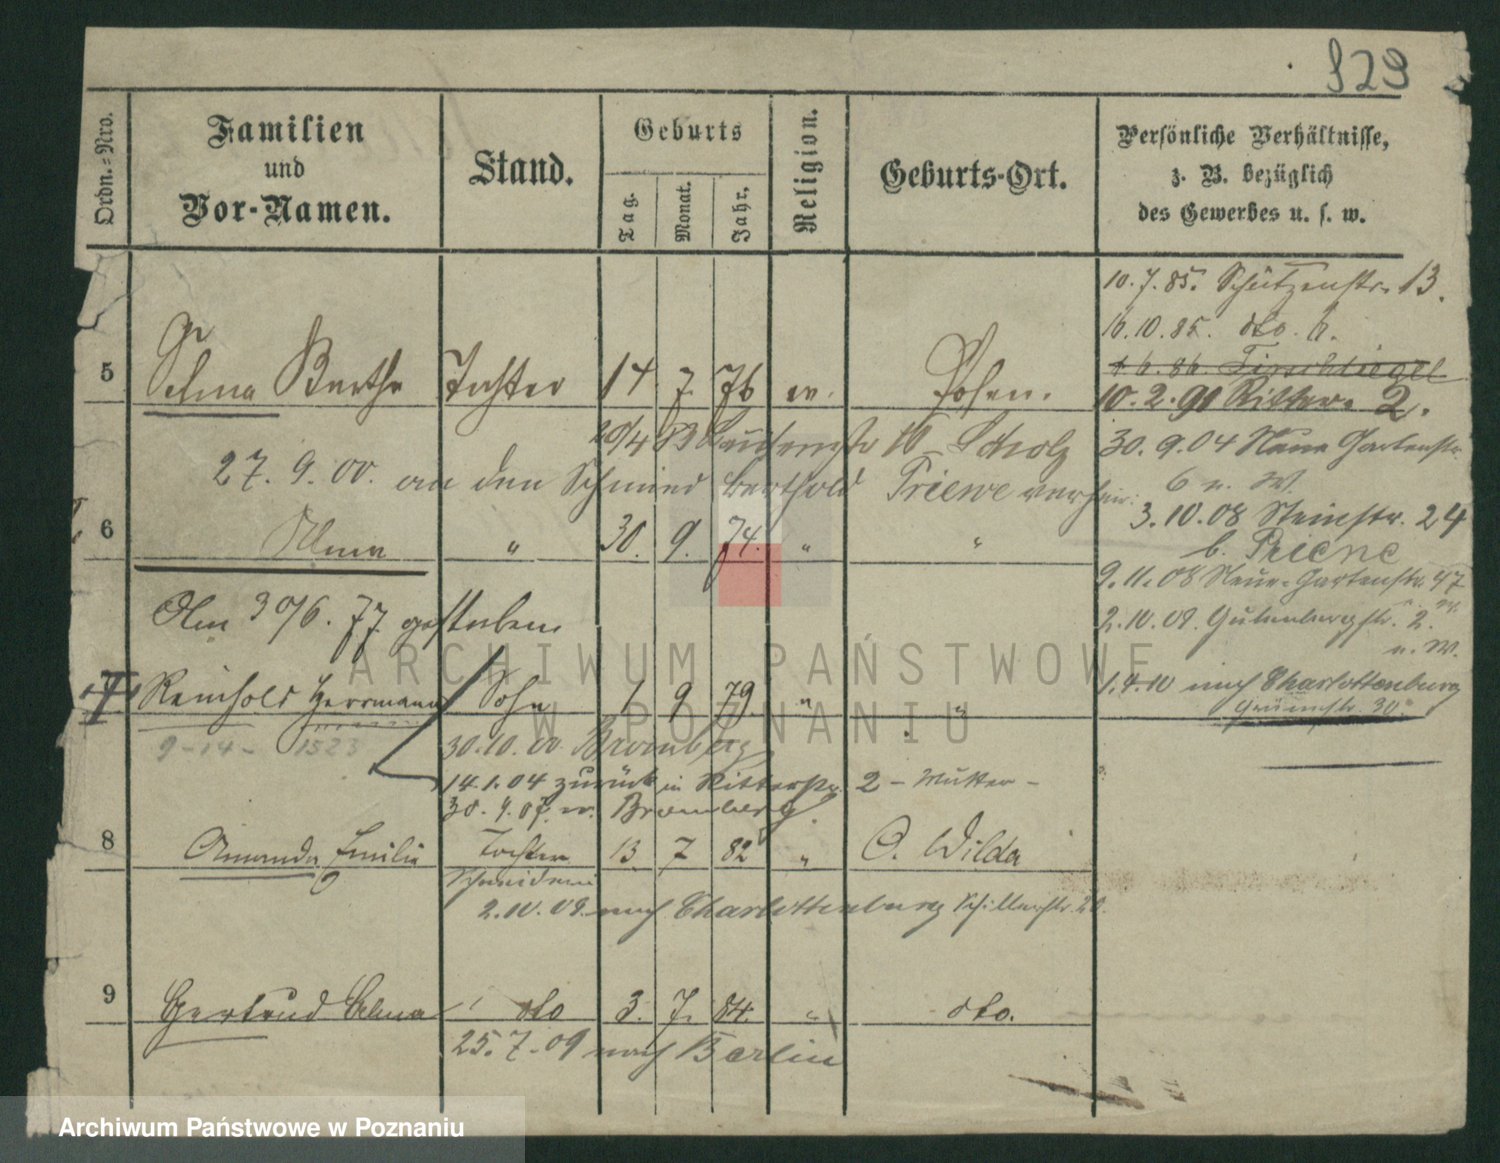 329
Ordn.=Nro.
Familien
und
Vor-Namen.
Stand.
Geburts
Tag.
Monat.
Jahr.
Religion.
Geburts-Ort.
Persönliche Verhältnisse,
z. B. bezüglich
des Gewerbes u. s. w.
10.7.85. Schützenstr. 13.
6.10.85. dto. 6.
1.6.86. Tirschtiegel
5 Selma Bertha Tochter 14 7. 76 ev. Posen.
10.2.91 Ritter- 2.
20/4 10 Scholz
30.9.04 Neue Gartenstr.
6 n. W.
27.9.00. an den Schmied Berthold Triewe verheir.
3.10.08 Steinstr. 24
b. Priene
6 Alma " 30. 9. 74. " "
9.11.08 Neue-Gartenstr. 47
n. W.
Am 30/6. 77. gestorben
2.10.09. Gutenbergstr. 2.
n. W.
7 Reinhold Herrmann Sohn 1 9 79. " "
1.4.10 nach Charlottenburg
Grünstr. 30.
9-14- 1523
30.10.00 Bromberg
14.1.04 zurück in Ritterstr. 2 - Mutter -
30.9.07. n. Bromberg.
8 Amanda Emilie Tochter 13 7 82 " O. Wilda
Schneiderin
2.10.09. nach Charlottenburg Schillerstr. 20.
9 Gertrud Alma dto 3. 7. 84. " dto.
25.7.09 nach Berlin
ARCHIWUM PAŃSTWOWE
W POZNANIU
Archiwum Państwowe w Poznaniu